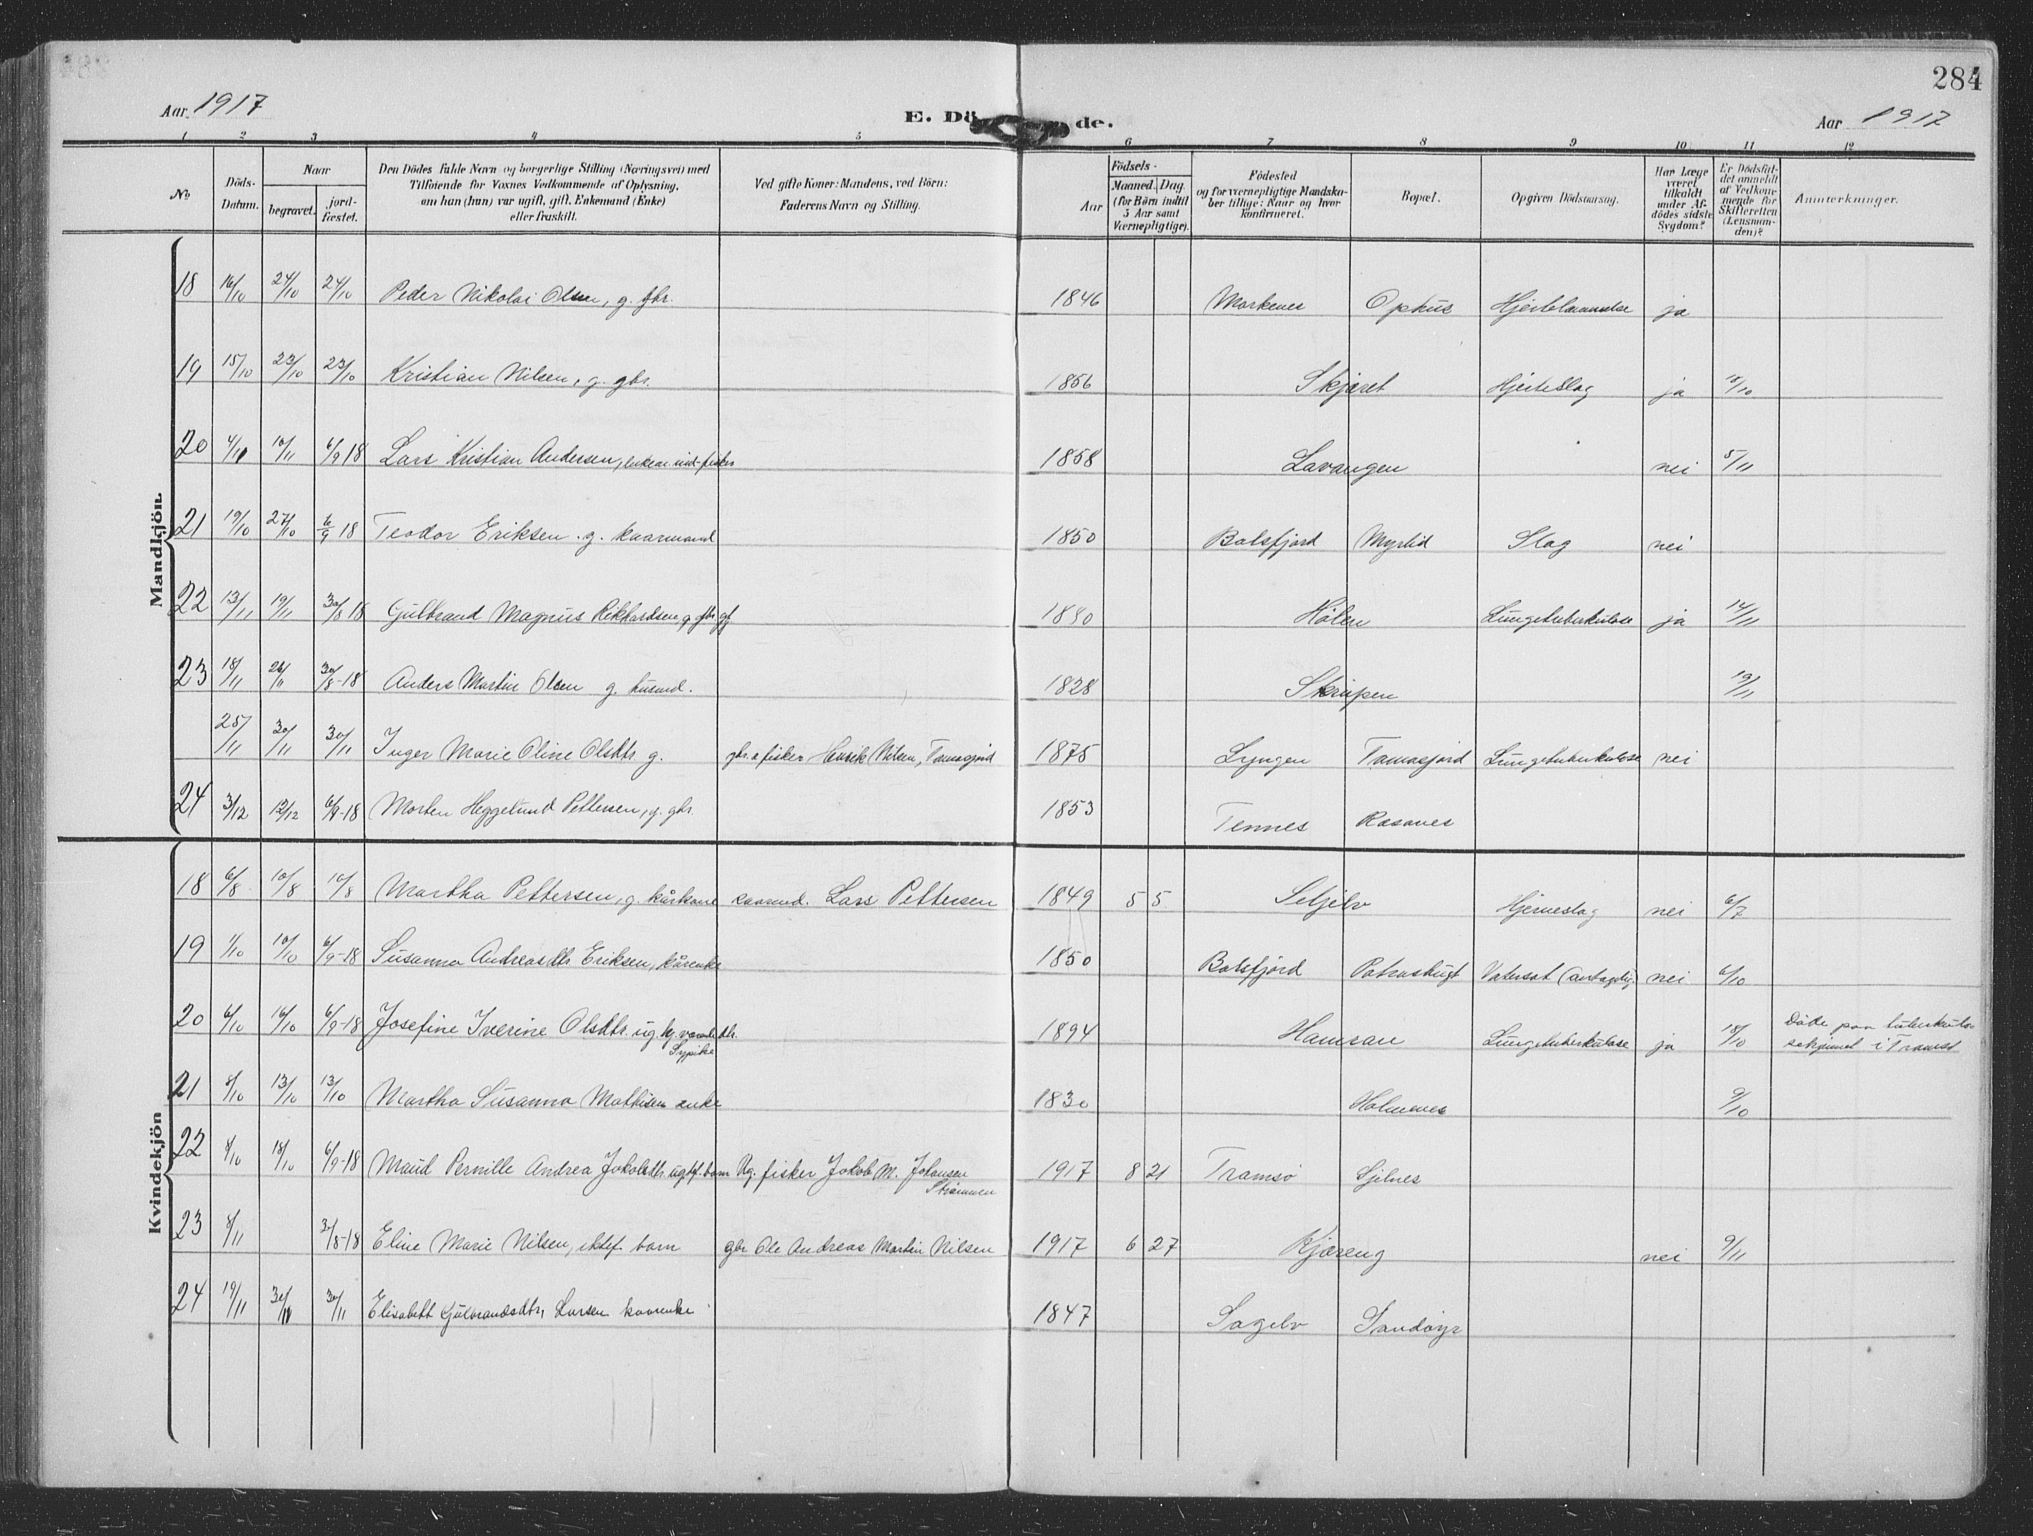 284
Aar 1917
E. Dö de.
Aar 1917
1 2 3 4 5 6 7 8 9 10 11 12
No
Döds-Datum.
Naar
begravet.
jord-fæstet.
Den Dödes fulde Navn og borgerlige Stilling (Næringsvei) med
Tilföiende for Voxnes Vedkommende af Oplysning,
om han (hun) var ugift, gift, Enkemand (Enke)
eller fraskilt.
Ved gifte Koner: Mandens, ved Börn:
Faderens Navn og Stilling.
Födsels-
Aar
Maaned. Dag.
(for Börn indtil
5 Aar samt
Værnepligtige).
Födested
og for værnepligtige Mandska-
ber tillige: Naar og hvor
konfirmeret.
Bopæl.
Opgiven Dödsaarsag.
Har Læge
været
tilkaldt
under Af-
dödes sidste
Sygdom?
Er Dödsfal-
det anmeldt
af Vedkom-
mende for
Skifteretten
(Lensman-
den)?
Anmærkninger.
Mandkjön.
18 16/10 24/10 24/10 Peder Nikolai Olsen, g. gbr. 1846 Markenes Ophus Hjertelammelse ja
19 15/10 23/10 23/10 Kristian Nilsen, g. gbr. 1856 Skjæret Hjerteslag ja 18/10
20 4/11 10/11 6/9 18 Lars Kristian Andersen, enkem. ind. fisker 1858 Lavangen nei 5/11
21 19/10 27/10 6/9 18 Teodor Eriksen . g. kaarmand 1850 Balsfjord Myrlid Slag nei
22 13/11 19/11 30/8 18 Gulbrand Magnus Rikhardsen g. gbr. 1880 Holen Lungetuberkulose ja 14/11
23 18/11 26/11 30/8-18 Anders Martin Olsen g. husmd. 1828 Skrupen 19/11
25/11 30/11 30/11 Inger Marie Oline Olsdtr. g. gbr. o fisker Henrik Nilsen, Tomasjord 1875 Lyngen Tomasjord Lungetuberkulose nei
24 3/12 12/12 6/9-18 Morten Heggelund Pettersen, g. gbr. 1853 Tennes Russnes
Kvindekjön
18 6/8 10/8 10/8 Martha Pettersen, g. kårkone kaarmd. Lars Pettersen 1849 5 5 Seljelv Hjerneslag nei 6/7
19 1/10 10/10 6/9-18 Susanna Andreasdtr Eriksen, kårenke 1850 Balsfjord Vatersot (antagelig) nei 6/10
20 6/10 16/10 6/9-18 Josefine Iverine Olsdtr. ug. hj. værnde dtr. 1894 Hamran Lungetuberkulose ja 18/10 Döde paa tuberkulo-
Sypike sehjemmet i Tromsö
21 8/10 13/10 13/10 Martha Susanna Mathisen enke 1830 Holmenes 9/10
22 8/10 18/10 6/9-18 Maud Pernille Andrea Jakobsdtr. ugtef. barn Ug. fisker Jakob M. Johansen 1917 8 21 Tromsö Sjelnes
Strömmen
23 8/11 3/8-18 Eline Marie Nilsen, ektef barn gbr Ole Andreas Martin Nilsen 1917 6 27 Kjæreng nei 9/11
24 19/11 30/11 30/11 Elisabeth Gulbrandsdtr, Larsen kaarenke 1847 Sagelv Sandöyr